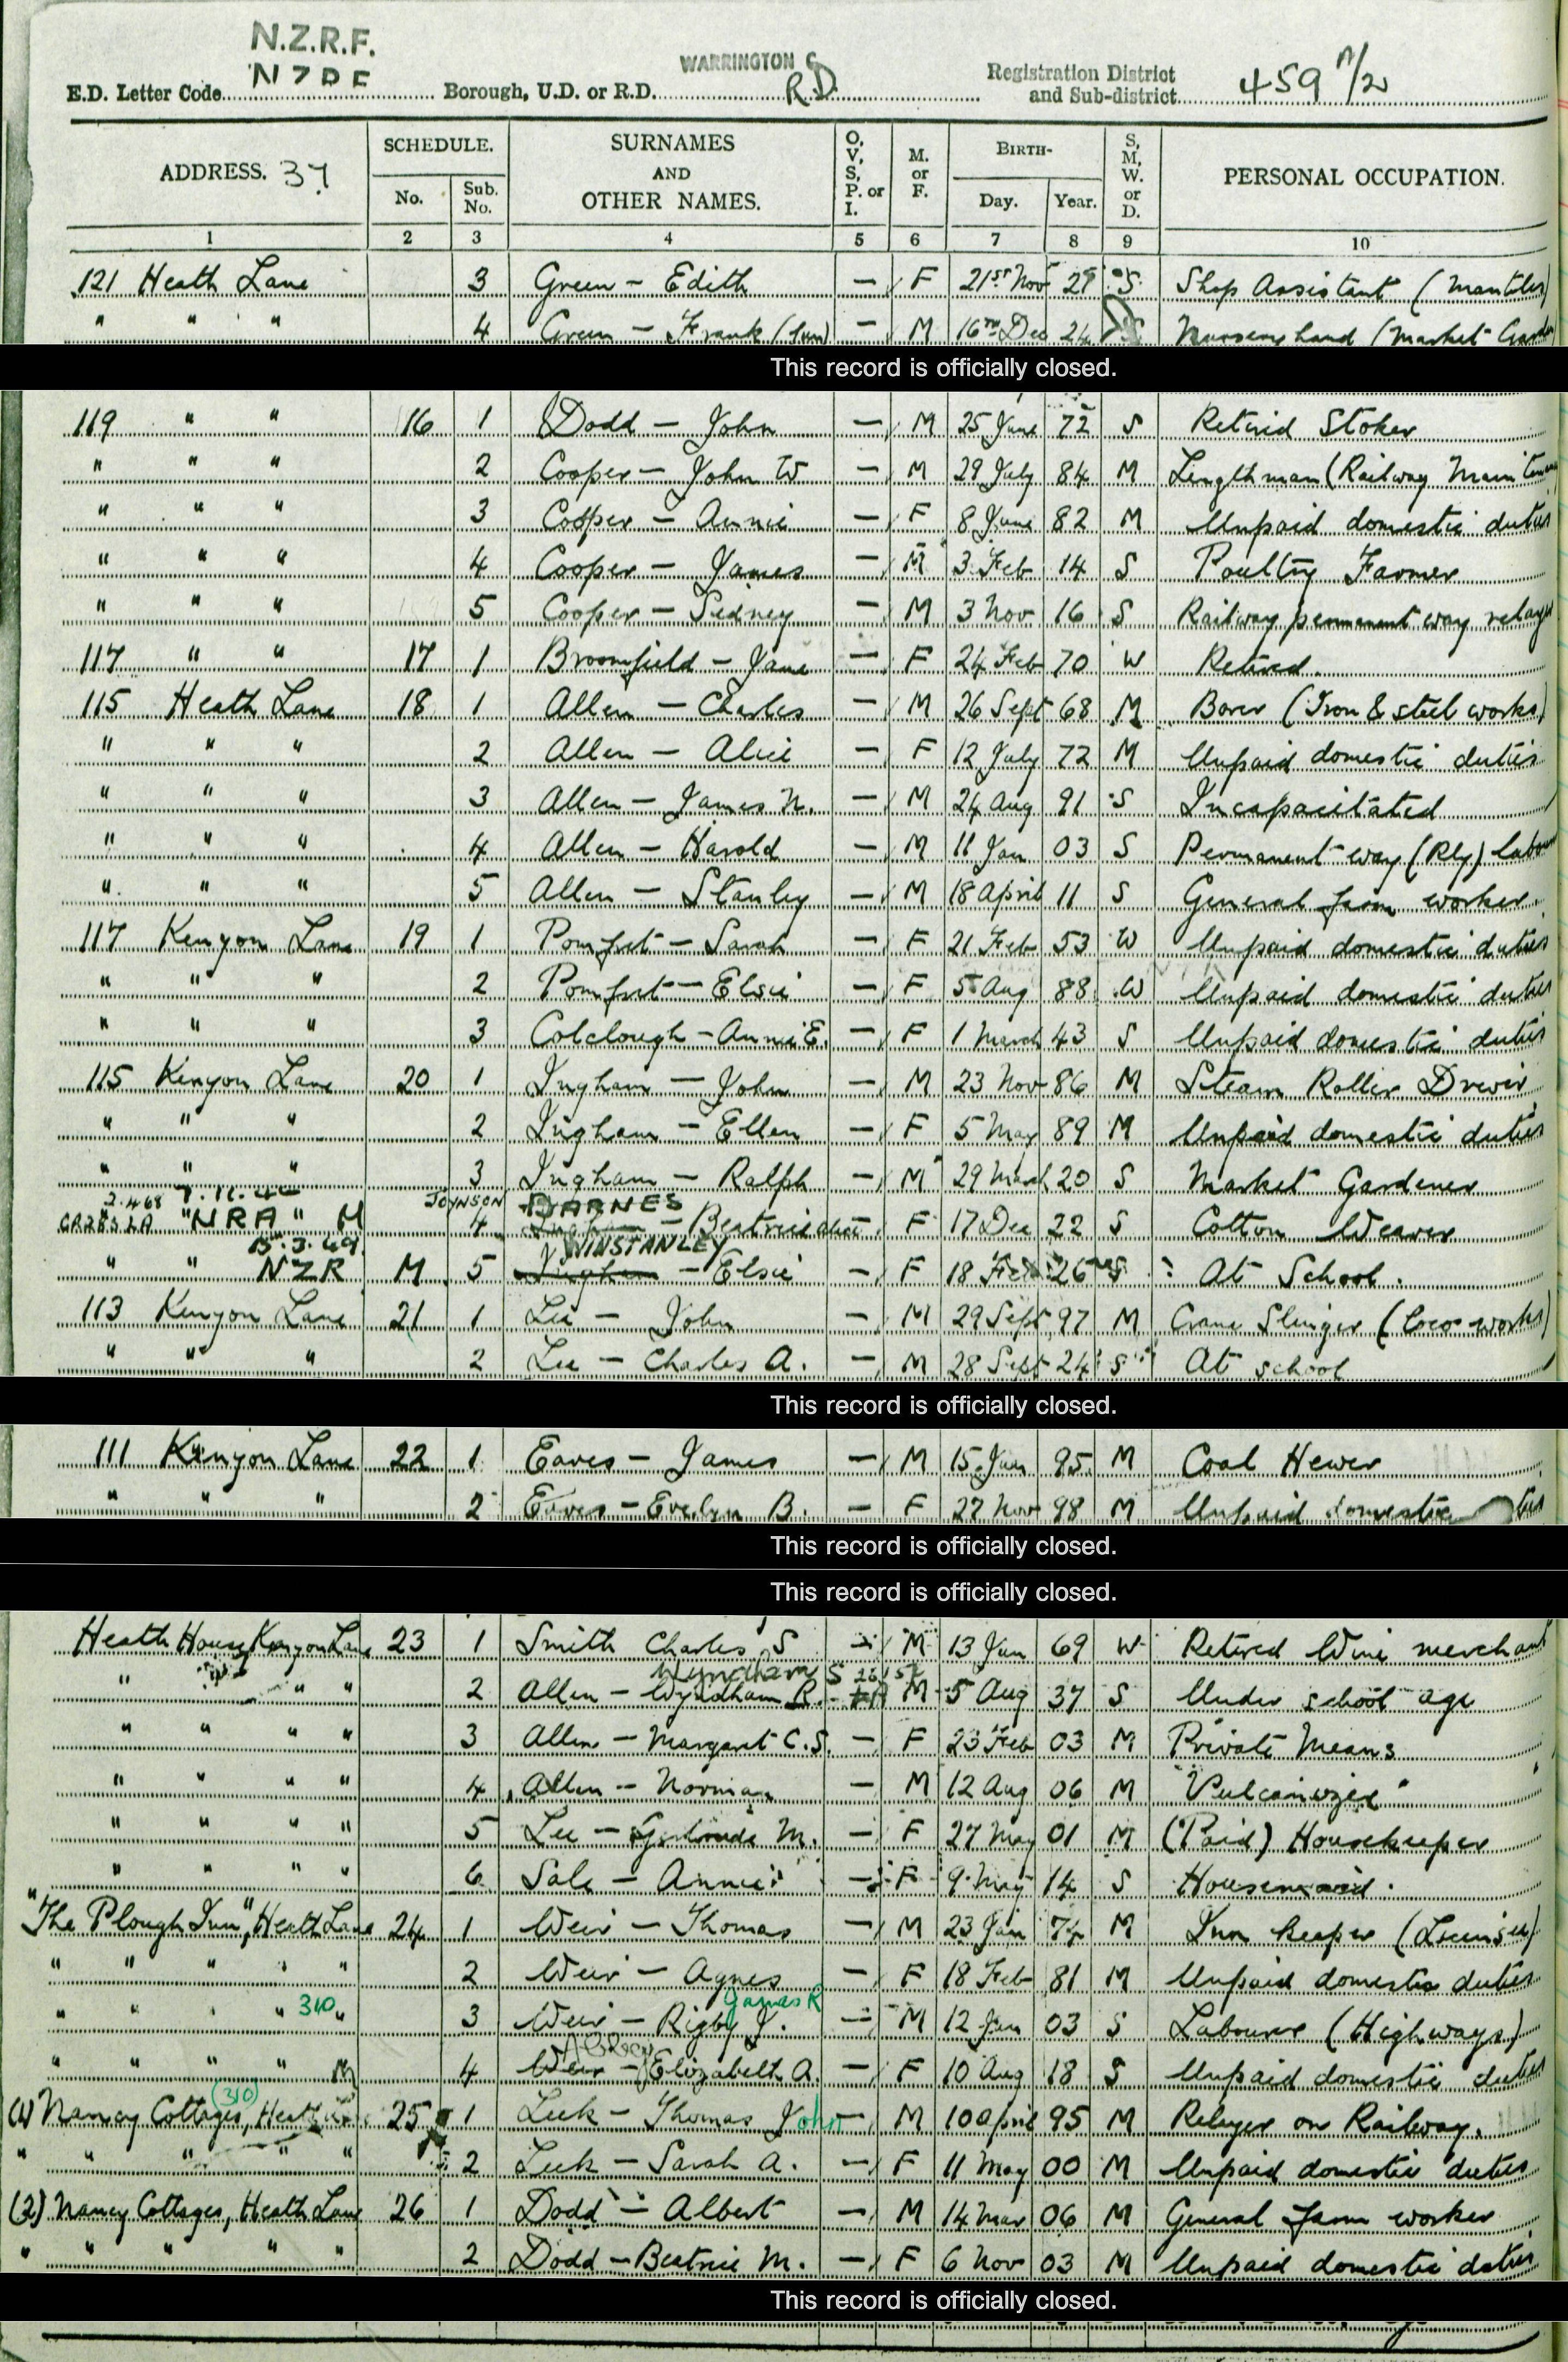 N.Z.R.F.
WARRINGTON
E.D. Letter Code NZDF Borough, U.D. or R.D. R.D. Registration District and Sub-district 459 A/2
ADDRESS. 37 SCHEDULE. No. Sub. No. SURNAMES AND OTHER NAMES. O, V, S, P. or I. M. or F. BIRTH- Day. Year. S, M, W. or D. PERSONAL OCCUPATION.
1 2 3 4 5 6 7 8 9 10
121 Heath Lane 3 Green - Edith - F 21st Nov S Shop Assistant (Mantles)
" " " 4 Green - Frank (Jun) - M 16th Dec 24 Nursery hand (Market
This record is officially closed.
119 " " 16 1 Dodd - John - M 25 June 72 S Retired Stoker
" " " 2 Cooper - John W - M 29 July 84 M Lengthman (Railway
" " " 3 Cooper - Annie - F 8 June 82 M Unpaid domestic duties
" " " 4 Cooper - James - M 3 Feb 14 S Poultry Farmer
" " " 5 Cooper - Sidney - M 3 Nov 16 S Railway permanent way
117 " " 17 1 Broomfield - Jane - F 24 Feb 70 W Retired
115 Heath Lane 18 1 Allen - Charles - M 26 Sept 68 M Borer (Iron & steel works)
" " " 2 Allen - Alice - F 12 July 72 M Unpaid domestic duties
" " " 3 Allen - James N. - M 24 Aug 91 S Incapacitated
" " " 4 Allen - Harold - M 11 Jan 03 S Permanent way (Rly)
" " " 5 Allen - Stanley - M 18 April 11 S General farm worker
117 Kenyon Lane 19 1 Pomfret - Sarah - F 21 Feb 53 W Unpaid domestic duties
" " " 2 Pomfret - Elsie - F 5 Aug 88 W Unpaid domestic duties
" " " 3 Colclough - Annie E. - F 1 March 43 S Unpaid domestic duties
115 Kenyon Lane 20 1 Ingham - John - M 23 Nov 86 M Steam Roller Driver
" " " 2 Ingham - Ellen - F 5 May 89 M Unpaid domestic duties
" " " 3 Ingham - Ralph - M 29 March 20 S Market Gardener
JOYNSON BARNES
"NRA" M 4 Ingham - Beatrice - F 17 Dec 22 S Cotton Weaver
15.3.49 WINSTANLEY
" " NZR M 5 Ingham - Elsie - F 18 Feb 26 S At School.
113 Kenyon Lane 21 1 Lee - John - M 29 Sept 97 M Crane Slinger (Loco works)
" " " 2 Lee - Charles A. - M 28 Sept 24 S At school
This record is officially closed.
111 Kenyon Lane 22 1 Eaves - James - M 15 Jan 95 M Coal Hewer
" " " 2 Eaves - Evelyn B. - F 27 Nov 98 M Unpaid domestic
This record is officially closed.
This record is officially closed.
Heath House Kenyon Lane 23 1 Smith Charles S - M 13 Jan 69 W Retired Wine merchant
Wyndham S
" " " 2 Allen - Wyndham R. M 5 Aug 37 S Under school age
" " " " 3 Allen - Margaret C.S. - F 23 Feb 03 M Private Means
" " " " 4 Allen - Norman - M 12 Aug 06 M "Vulcanizer"
" " " " 5 Lee - Gertrude M. - F 27 May 01 M (Paid) Housekeeper
" " " " 6 Sale - Annie - F 9 May 14 S Housemaid.
"The Plough Inn", Heath Lane 24 1 Weir - Thomas - M 23 Jan 74 M Inn keeper
" " " " " 2 Weir - Agnes - F 18 Feb 81 M Unpaid domestic duties
James R
" " " " 310 " 3 Weir - Rigby J. - M 12 Jan 03 S Labourer (Highways)
" " " " M 4 Weir - Elizabeth A. - F 10 Aug 18 S Unpaid domestic duties
(310)
(1) Nancy Cottages, Heath Lane 25 1 Leek - Thomas John - M 10 April 95 M Relayer on Railway.
" " " " " 2 Leek - Sarah A. - F 11 May 00 M Unpaid domestic duties
(2) Nancy Cottages, Heath Lane 26 1 Dodd - Albert - M 14 Mar 06 M General Farm worker
" " " " " 2 Dodd - Beatrice M. - F 6 Nov 03 M Unpaid domestic duties
This record is officially closed.